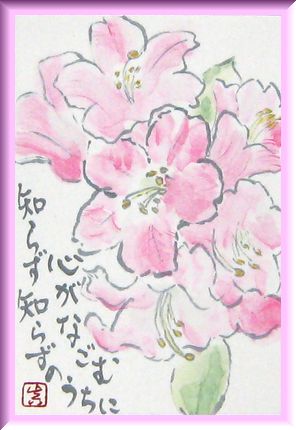 知らず知らずの
うちに
心がなごむ